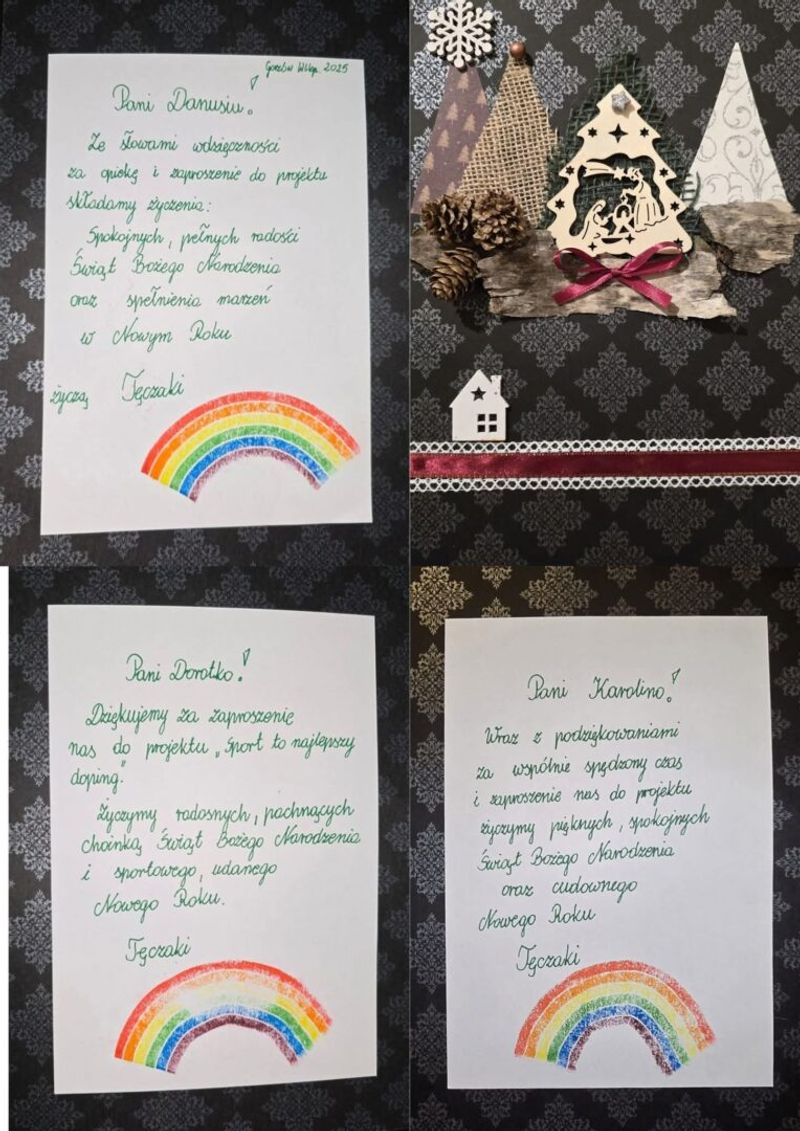 Gorzów Wlkp. 2025
Pani Danusiu!
Ze słowami wdzięczności
za opiekę i zaproszenie do projektu
składamy życzenia:
Spokojnych, pełnych radości
Świąt Bożego Narodzenia
oraz spełnienia marzeń
w Nowym Roku
życzą Tęczaki
Pani Dorotko!
Dziękujemy za zaproszenie
nas do projektu „Sport to najlepszy
doping."
Życzymy radosnych, pachnących
choinką Świąt Bożego Narodzenia
i sportowego, udanego
Nowego Roku.
Tęczaki
Pani Karolino!
Wraz z podziękowaniami
za wspólnie spędzony czas
i zaproszenie nas do projektu
życzymy pięknych, spokojnych
Świąt Bożego Narodzenia
oraz cudownego
Nowego Roku
Tęczaki